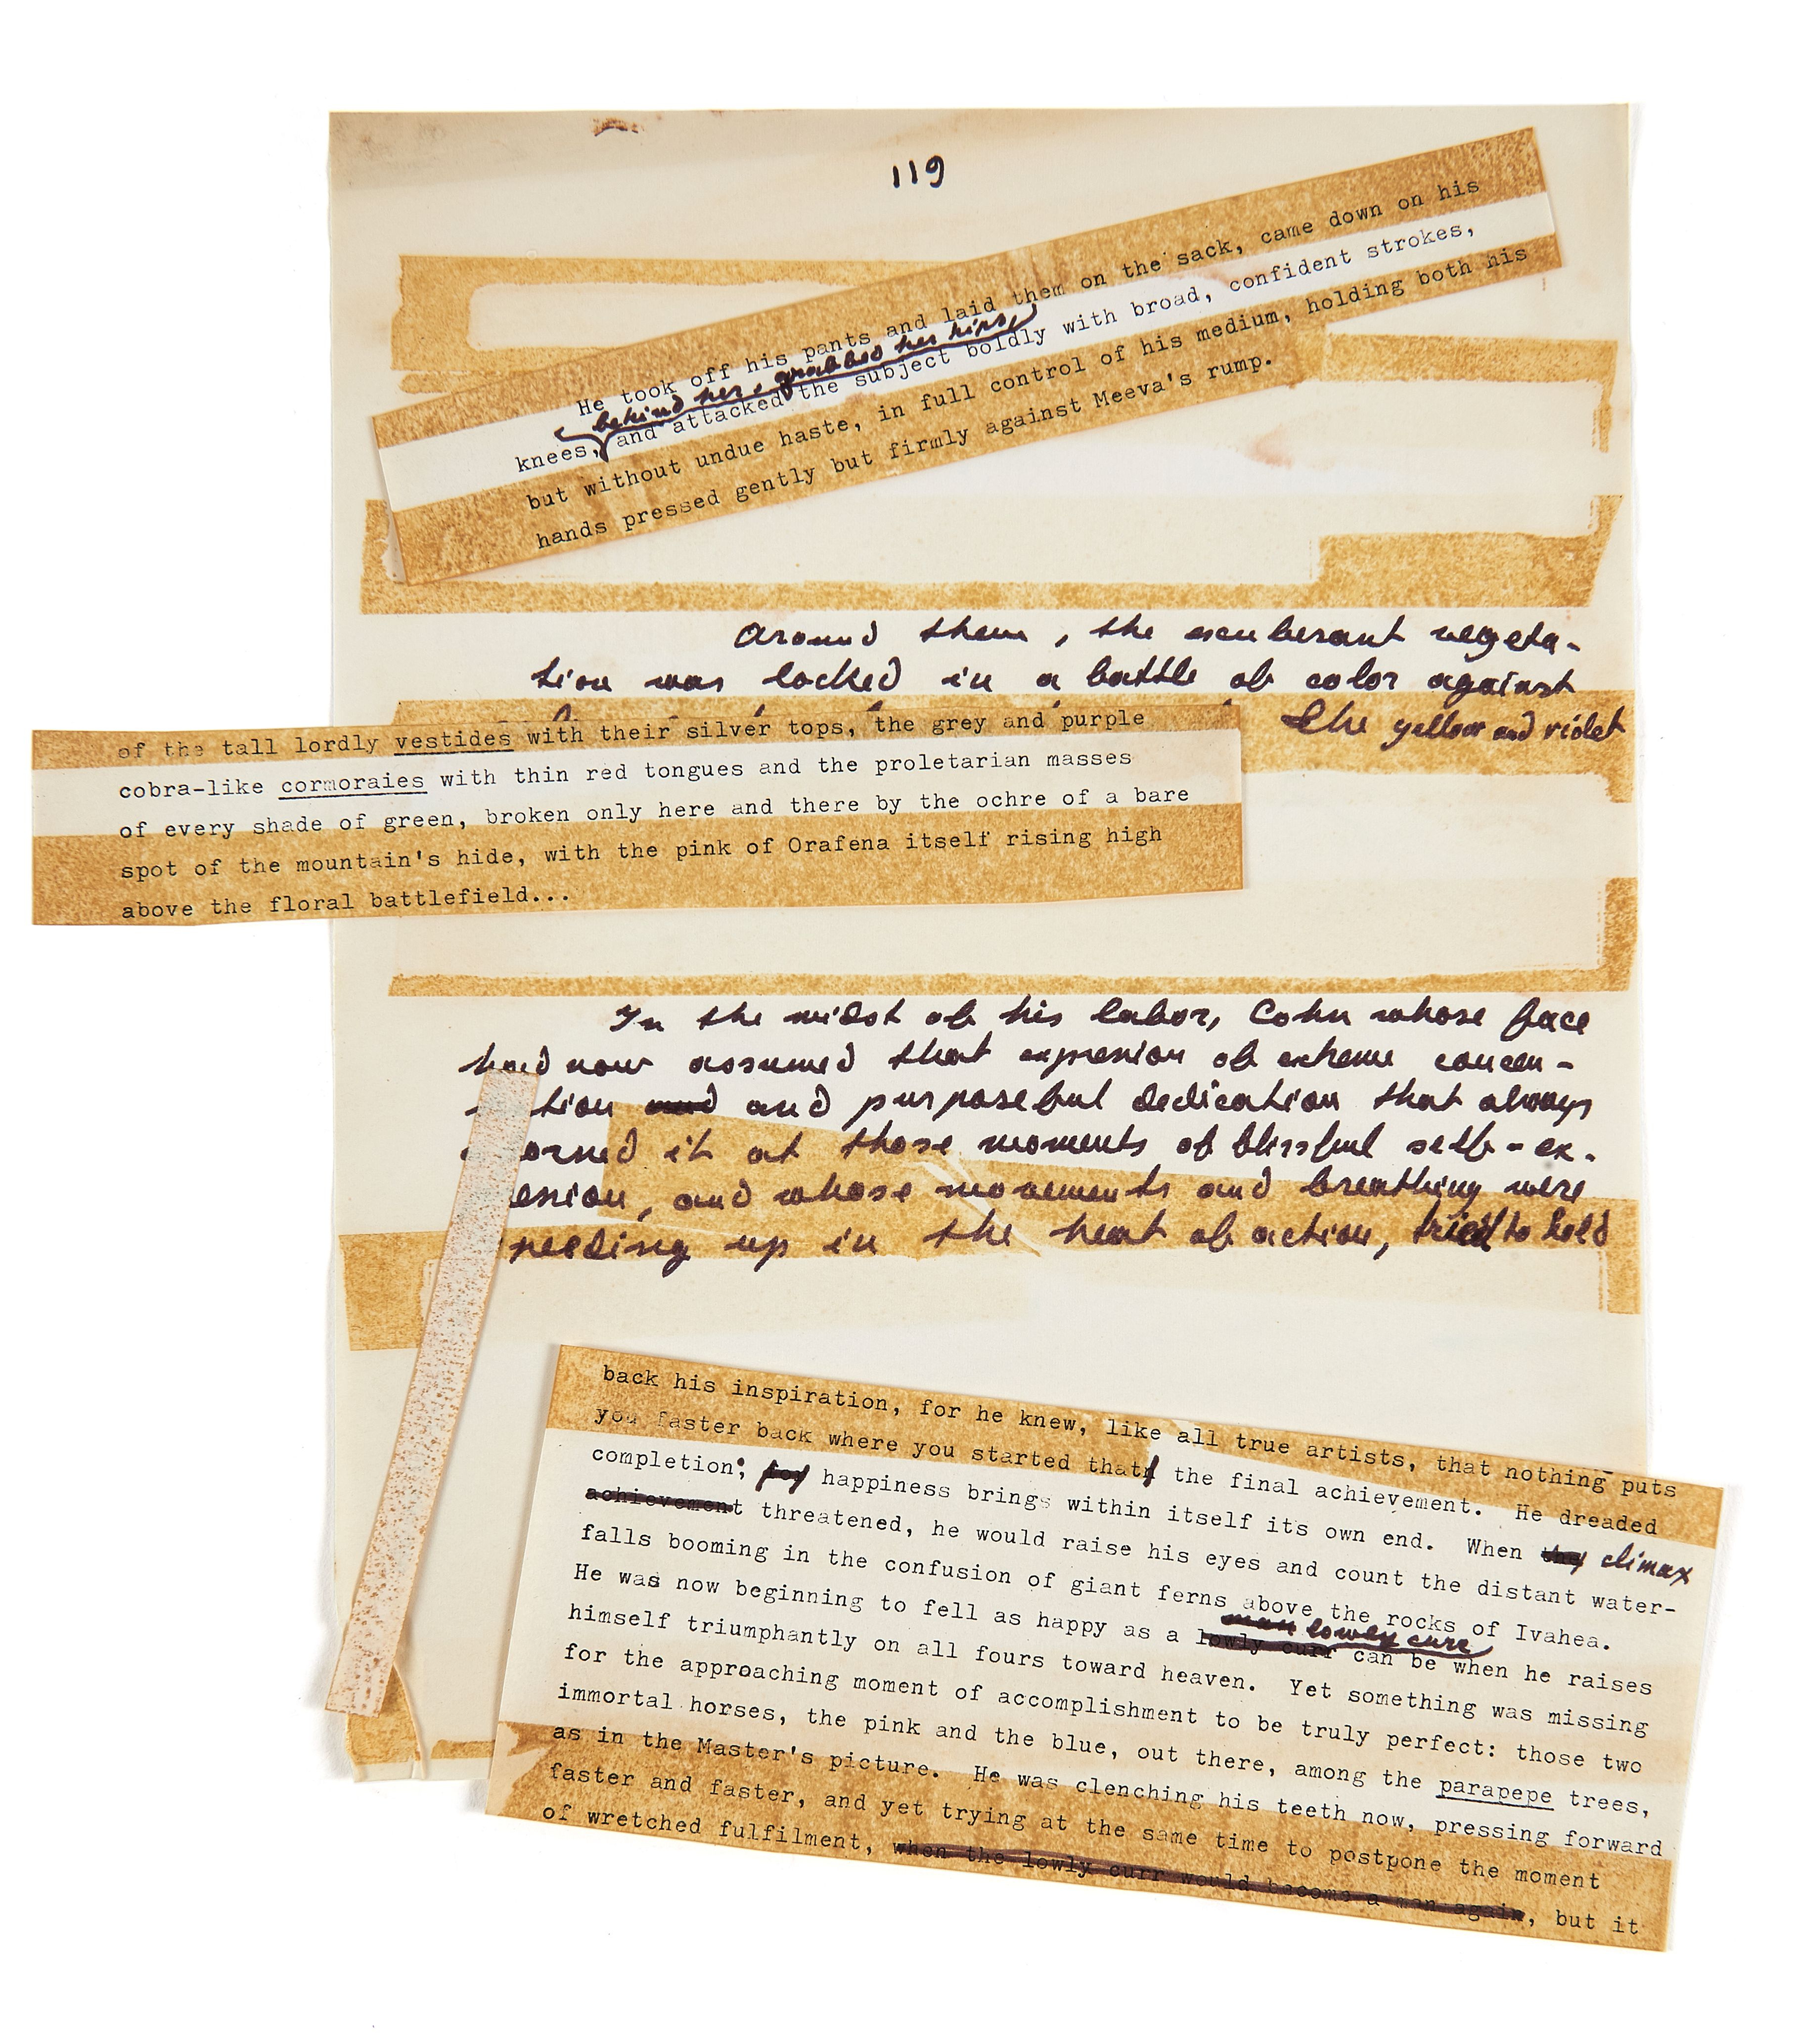 119
He took off his pants and laid them on the sack, came down on his
behind her, grabbed her hips,
knees, and attacked the subject boldly with broad, confident strokes,
but without undue haste, in full control of his medium, holding both his
hands pressed gently but firmly against Meeva's rump.
Around them, the exuberant vegeta-
tion was locked in a battle of color against
the yellow and violet
of the tall lordly vestides with their silver tops, the grey and purple
cobra-like cormoraies with thin red tongues and the proletarian masses
of every shade of green, broken only here and there by the ochre of a bare
spot of the mountain's hide, with the pink of Orafena itself rising high
above the floral battlefield...
In the midst of his labor, Cohn whose face
had now assumed that expression of extreme concen-
tion and and purposeful dedication that always
orned it at those moments of blissful self-ex-
ession, and whose movements and breathing were
peeding up in the heat of action, tried to hold
back his inspiration, for he knew, like all true artists, that nothing puts
you faster back where you started that the final achievement. He dreaded
completion; joy happiness brings within itself its own end. When they climax
achievement threatened, he would raise his eyes and count the distant water-
falls booming in the confusion of giant ferns above the rocks of Ivahea.
man lowly cure
He was now beginning to fell as happy as a lowly curr can be when he raises
himself triumphantly on all fours toward heaven. Yet something was missing
for the approaching moment of accomplishment to be truly perfect: those two
immortal horses, the pink and the blue, out there, among the parapepe trees,
as in the Master's picture. He was clenching his teeth now, pressing forward
faster and faster, and yet trying at the same time to postpone the moment
of wretched fulfilment, when the lowly curr would become a man again, but it